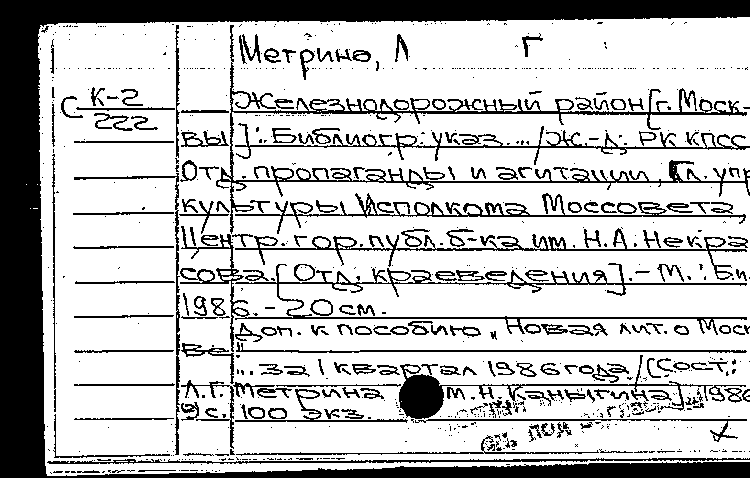 Метрино, Л Г
С К-2
222
Железнодорожный район [г. Моск-
вы]: Библиогр. указ. ... /Ж.-д. РК КПСС
Отд. пропаганды и агитации, Гл. упр
культуры Исполкома Моссовета,
Центр. гор. публ. б-ка им. Н.А. Некра
сова. [Отд. краеведения]. - М.: Би
1986. - 20 см.
Доп. к пособию „Новая лит. о Моск
ве"
... за I квартал 1986 года /[Сост.:
Л.Г. Метрина М.Н. Каныгина]. 1986
9 с. 100 экз.